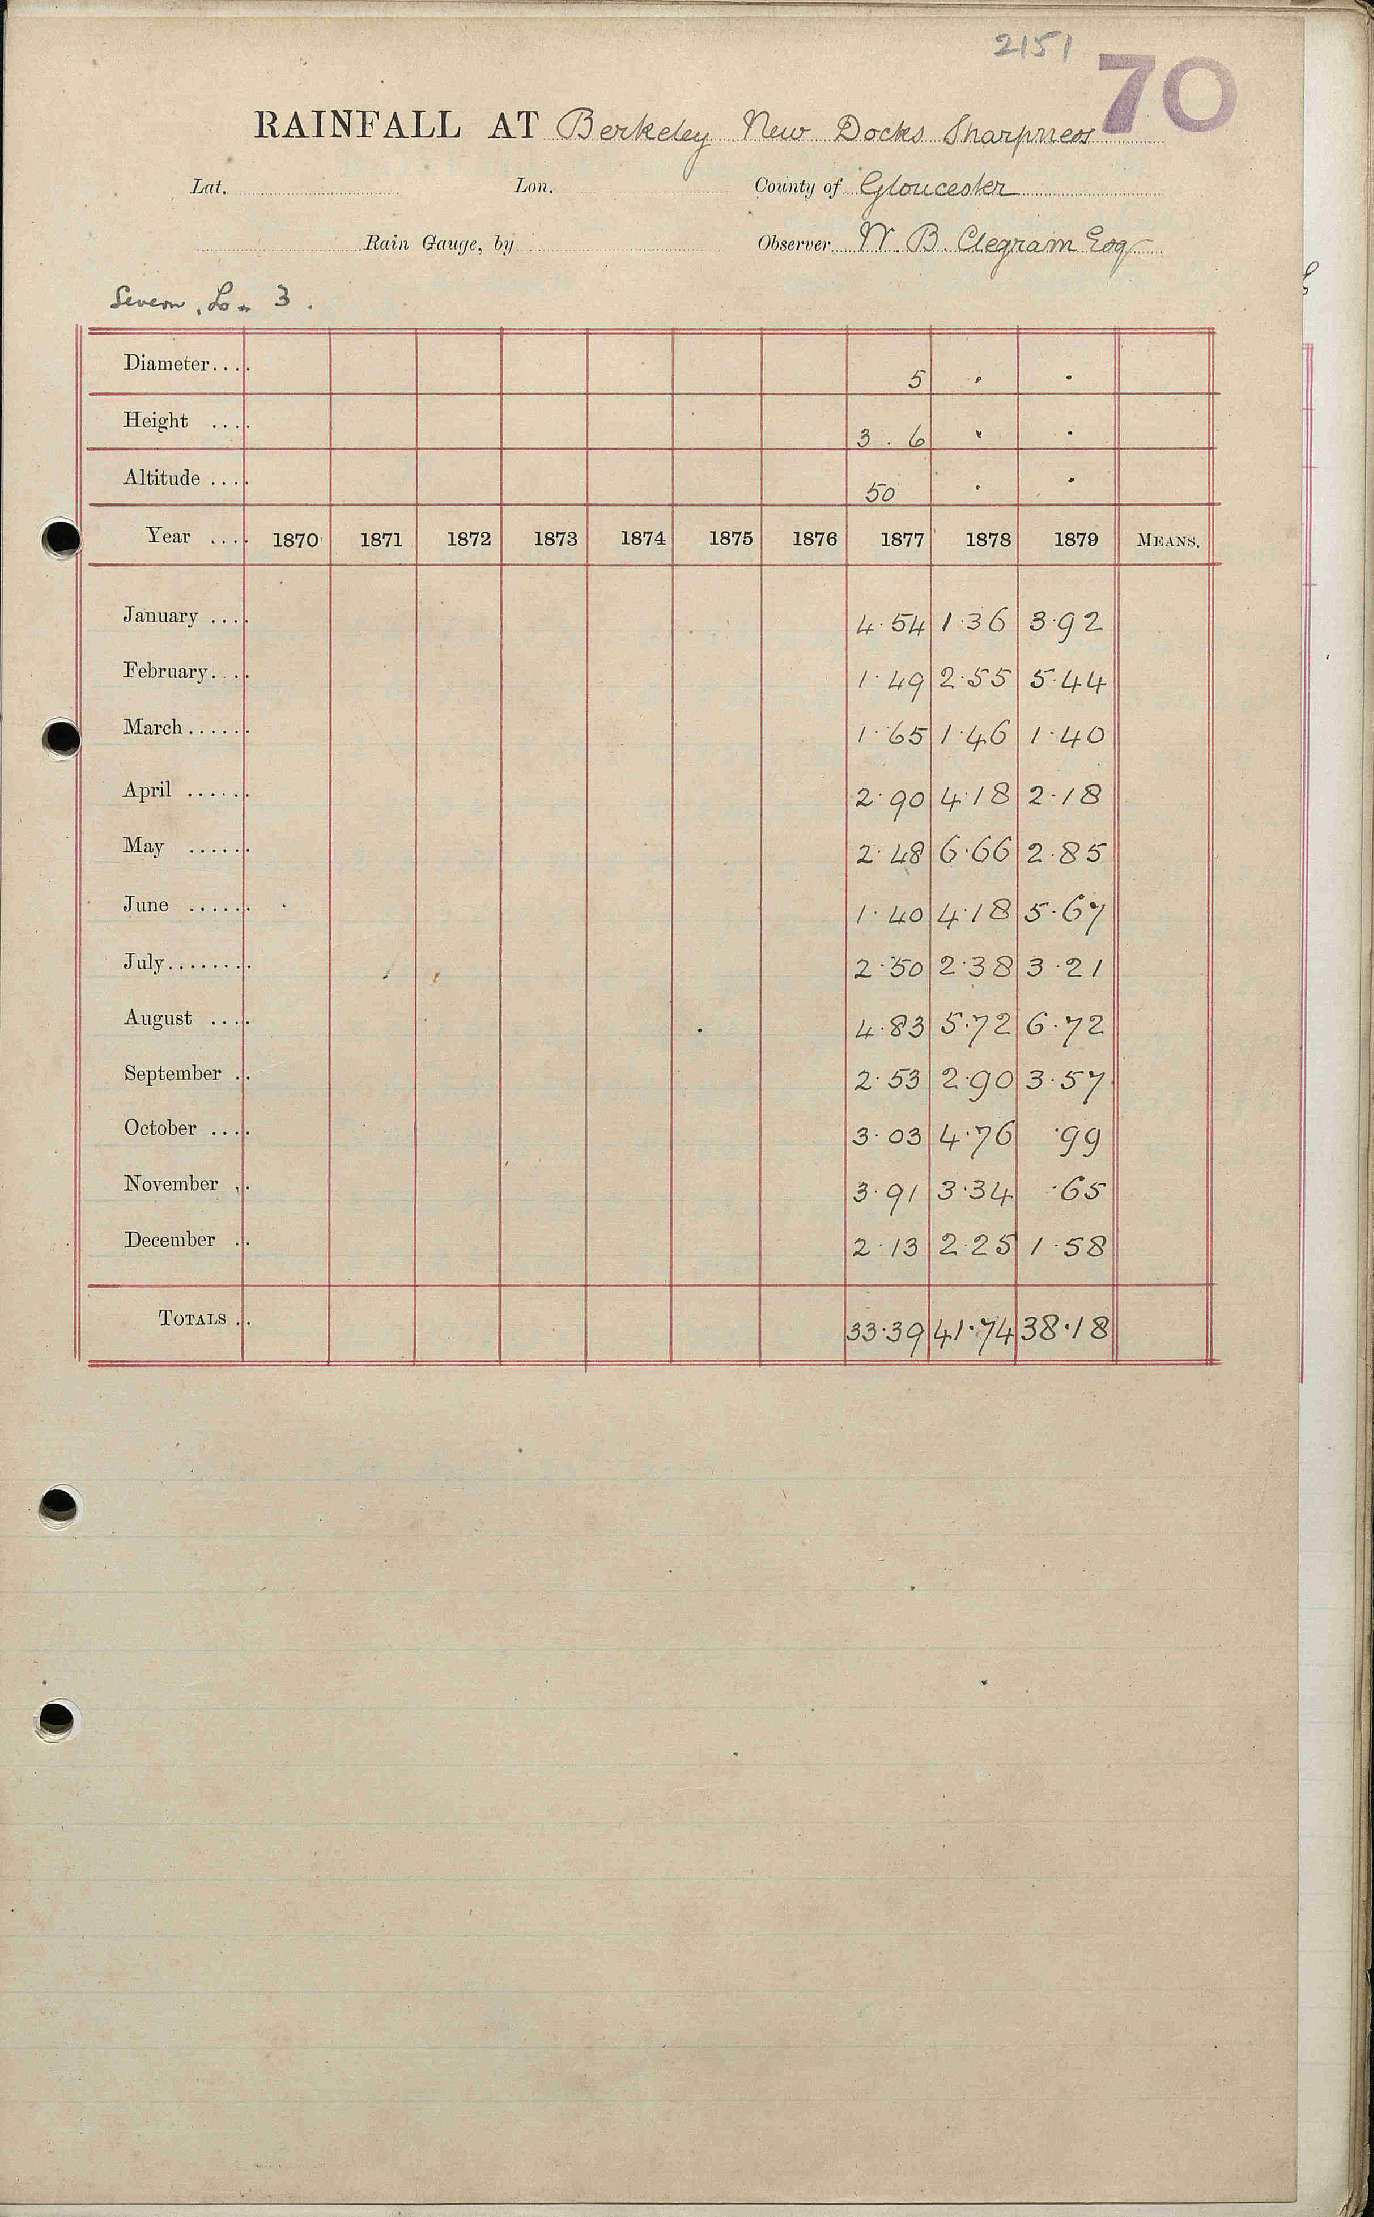 2151
70
RAINFALL AT Berkeley New Docks Sharpness
Lat. Lon. County of Gloucester
Rain Gauge, by Observer W. B. Clegram Esq
Severn, Lo. 3.
Diameter.... 5 " "
Height .... 3 . 6 " "
Altitude .... 50 " "
Year .... 1870 1871 1872 1873 1874 1875 1876 1877 1878 1879 MEANS.
January .... 4.54 1.36 3.92
February.... 1.49 2.55 5.44
March...... 1.65 1.46 1.40
April ...... 2.90 4.18 2.18
May ...... 2.48 6.66 2.85
June ...... 1.40 4.18 5.67
July........ 2.50 2.38 3.21
August .... 4.83 5.72 6.72
September .. 2.53 2.90 3.57
October .... 3.03 4.76 .99
November .. 3.91 3.34 .65
December .. 2.13 2.25 1.58
TOTALS .. 33.39 41.74 38.18